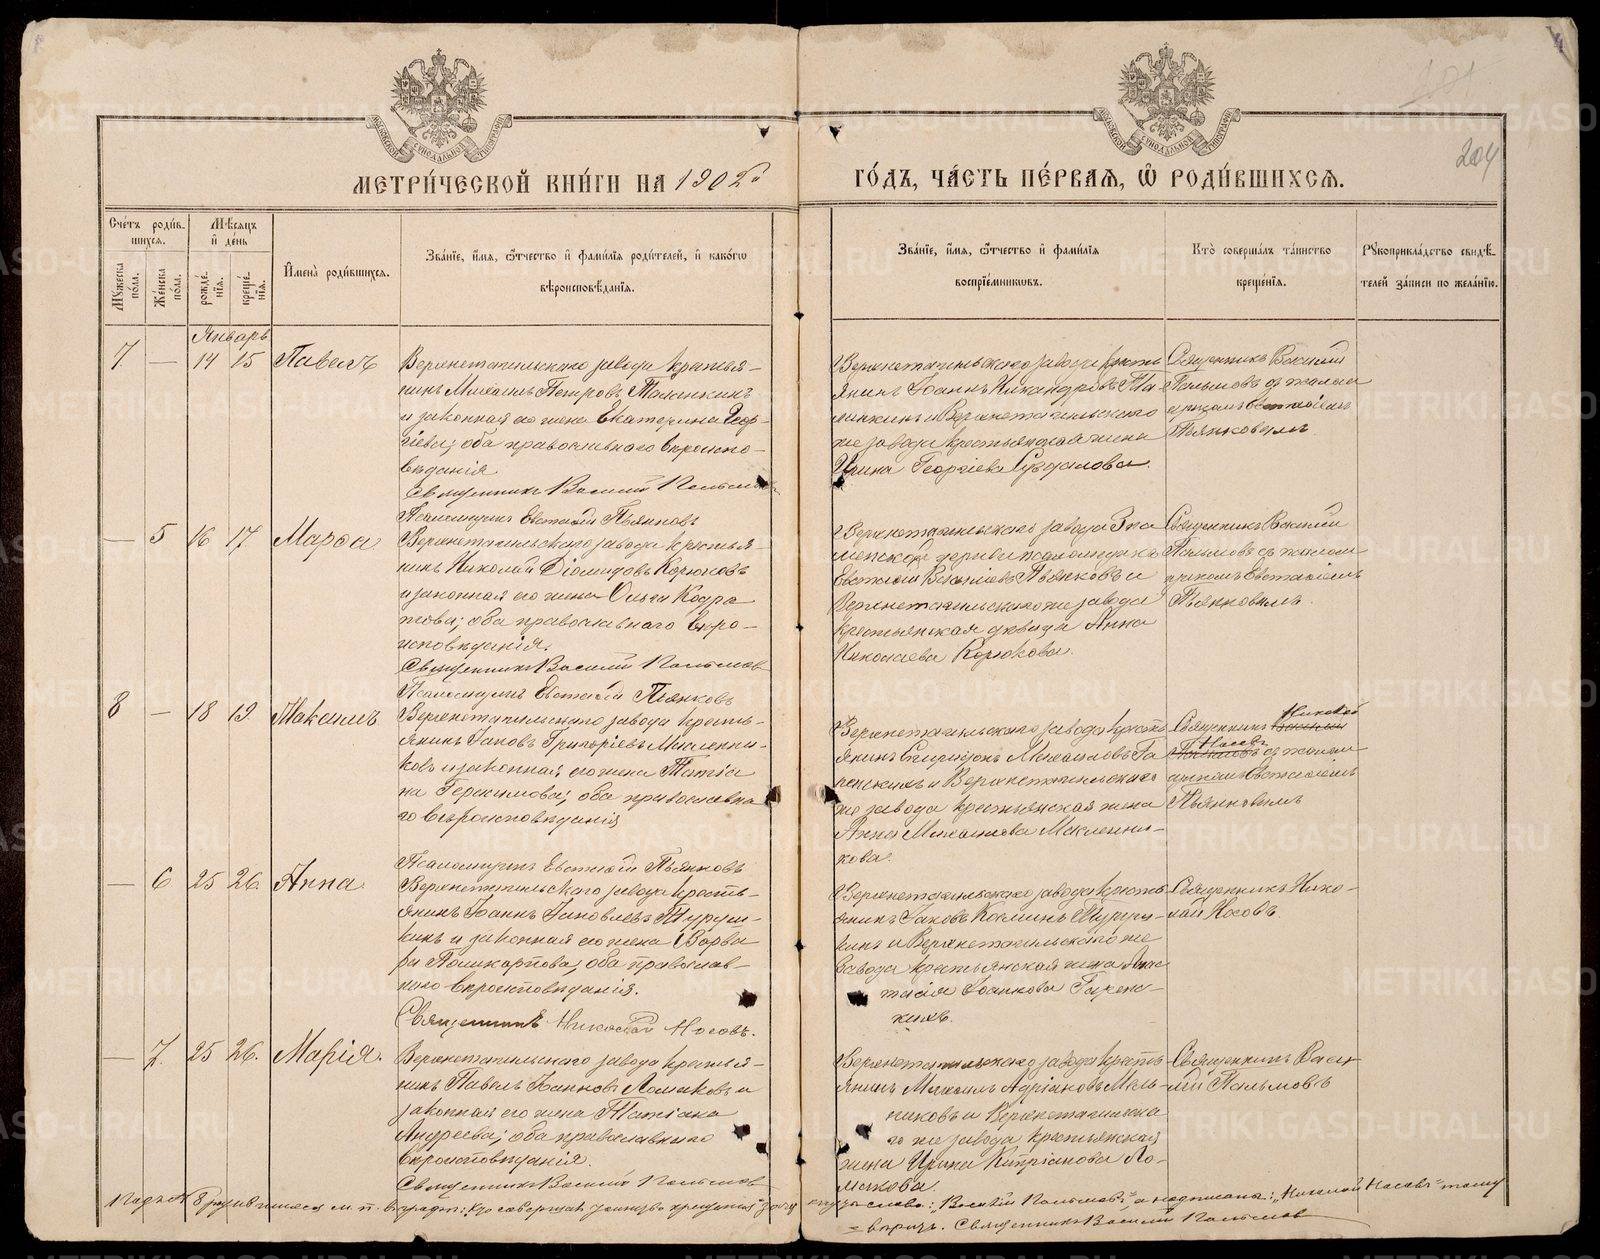 МЕТРИ́ЧЕСКОЙ КНИ́ГИ НА 1902й
ГО́ДЪ, ЧА́СТЬ ПЕ́РВАѦ, Ѡ РОДИ́ВШИХСѦ.
204
Сче́тъ роди́в-
шихсѧ.
Мѣ́сѧцъ
и҆ де́нь
Мꙋ́жеска
по́ла.
Же́нска
по́ла.
рожде́-
нїѧ.
креще́-
нїѧ.
И҆мена̀ роди́вшихсѧ.
Зва́нїе, и҆́мѧ, ѻ҆́тчество и҆ фами́лїѧ роди́телей, и҆ како́гѡ
вѣроисповѣ́данїѧ.
Зва́нїе, и҆́мѧ, ѻ҆́тчество и҆ фами́лїѧ
воспрїе́мникѡвъ.
Кто̀ соверша́лъ та́инство
креще́нїѧ.
Рꙋкоприкла́дство свидѣ́-
телей за́писи по жела́нїю.
Январь
7 — 14 15 Павелъ
Верхнетагильскаго завода крестья-
нинъ Михаилъ Петровъ
и законная его жена Екатерина Геор-
гіева; оба православнаго вѣроиспо-
вѣданія
Священникъ Василій Пальмовъ
Псаломщикъ Евстафій Пьянковъ
Верхнетагильскаго завода кресть
янинъ Іоаннъ Никандровъ
и Верхнетагильскаго
же завода крестьянская жена
Ирина Георгіева Суздалова.
Священникъ Василій
Пальмовъ съ псалом
щикомъ Евстафіемъ
Пьянковымъ
— 5 16 17 Марѳа
Верхнетагильскаго завода крестья-
нинъ Николай Діомидовъ Корюковъ
и законная его жена Ольга Кодра
това; оба православнаго вѣро-
исповѣданія.
Священникъ Василій Пальмовъ
Псаломщикъ Евстафій Пьянковъ
Верхнетагильскаго завода Зна
менской церкви псаломщикъ
Евстафій Пьянковъ и
Верхнетагильскаго же завода
крестьянская дѣвица Анна
Николаева Корюкова.
Священникъ Василій
Пальмовъ съ псалом
щикомъ Евстафіемъ
Пьянковымъ.
8 — 18 19 Максимъ
Верхнетагильскаго завода кресть-
янинъ Іаковъ Григорьевъ Масленни-
ковъ и законная его жена Татіа
на Герасимова; оба православна
го вѣроисповѣданія
Псаломщикъ Евстафій Пьянковъ
Верхнетагильскаго завода кресть
янинъ Спиридонъ Михаиловъ Га
ренскихъ и Верхнетагильскаго
же завода крестьянская жена
Анна Михаилова Масленни-
кова.
Николай
Священникъ Василій
Носовъ
Пальмовъ съ псалом
щикомъ Евстафіемъ
Пьянковымъ
— 6 25 26. Анна
Верхнетагильскаго завода кресть-
янинъ Іоаннъ Іаковлевъ
и законная его жена Варва
ра Поликарпова; оба православ-
наго вѣроисповѣданія.
Священникъ Николай Носовъ.
Верхнетагильскаго завода кресть
янинъ Іаковъ Косминъ
и Верхнетагильскаго же
завода крестьянская жена Анас
тасія Іоаннова Гаренс-
кихъ.
Священникъ Нико-
лай Носовъ.
— 7. 25 26. Марія.
Верхнетагильскаго завода крестья-
нинъ Павелъ Іоанновъ Ломаковъ и
законная его жена Татіана
Андреева; оба православнаго
вѣроисповѣданія.
Священникъ Василій Пальмовъ
Верхнетагильскаго завода кресть
янинъ Михаилъ Адріановъ Мель-
никовъ и Верхнетагильска
го же завода крестьянская
жена Ирина Кипріанова Ло-
макова.
Священникъ Васи-
лій Пальмовъ
Подъ № 8 родившихся м. п. въ графѣ: „Кто совершалъ таинство крещенія" слова: „Василій Пальмовъ", а надписано: „Николай Носовъ" тому
вѣрить. Священникъ Василій Пальмовъ
METRIKI.GASO-URAL.RU